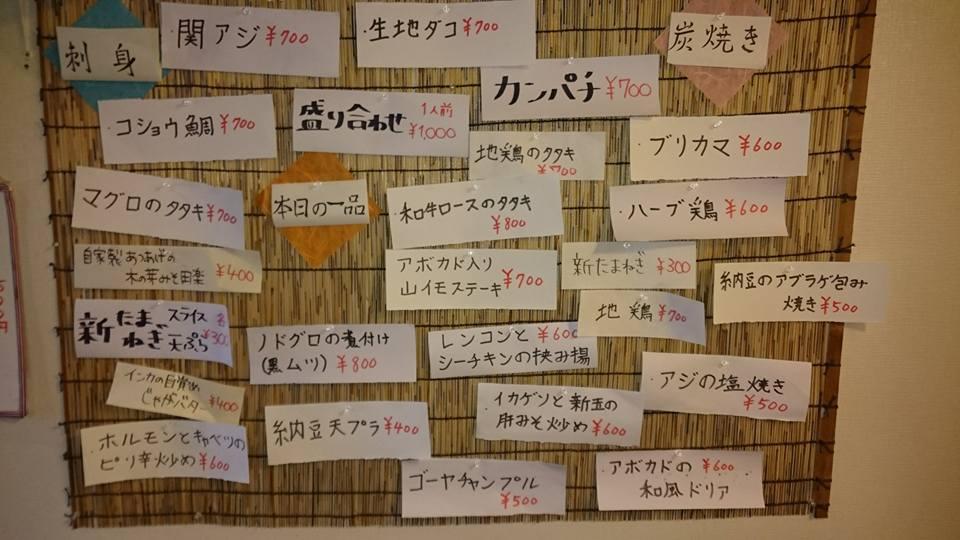 刺身
関アジ ¥700
生地ダコ ¥700
炭焼き
カンパチ ¥700
コショウ鯛 ¥700
盛り合わせ 1人前
¥1,000
地鶏のタタキ
¥700
ブリカマ ¥600
マグロのタタキ ¥700
本日の一品
和牛ロースのタタキ
¥800
ハーブ鶏 ¥600
自家製あつあげの
木の芽みそ田楽 ¥400
アボカド入り
山イモステーキ ¥700
新たまねぎ ¥300
納豆のアブラゲ包み
焼き ¥500
地鶏 ¥700
新たまねぎ スライス 各
天ぷら ¥300
ノドグロの煮付け
(黒ムツ) ¥800
レンコンと ¥600
シーチキンの挟み揚
アジの塩焼き
¥500
インカの目覚め
じゃがバター ¥400
納豆天プラ ¥400
イカゲソと新玉の
肝みそ炒め ¥600
ホルモンとキャベツの
ピリ辛炒め ¥600
ゴーヤチャンプル
¥500
アボカドの ¥600
和風ドリア